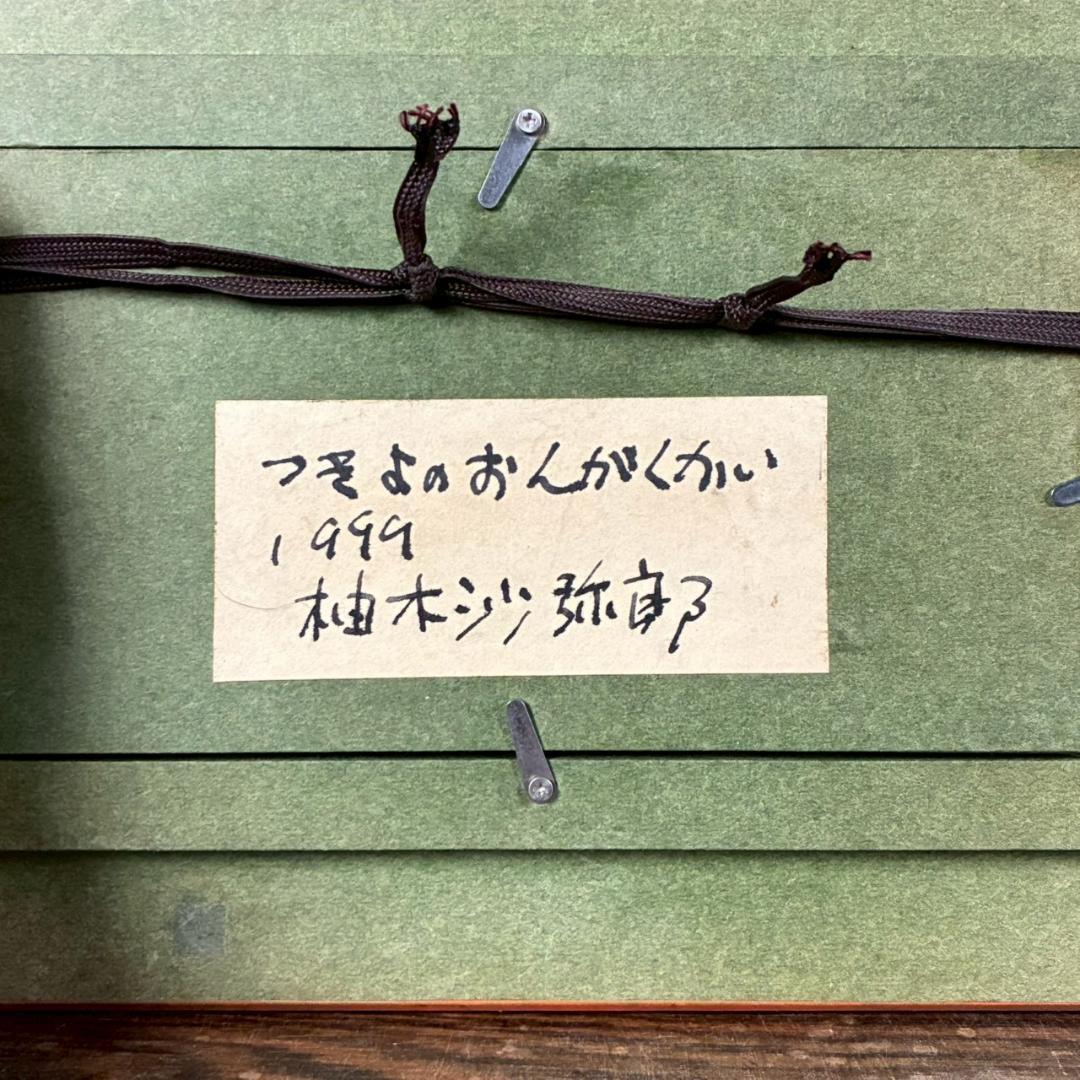 つきよのおんがくかい
1999
柚木沙弥郎